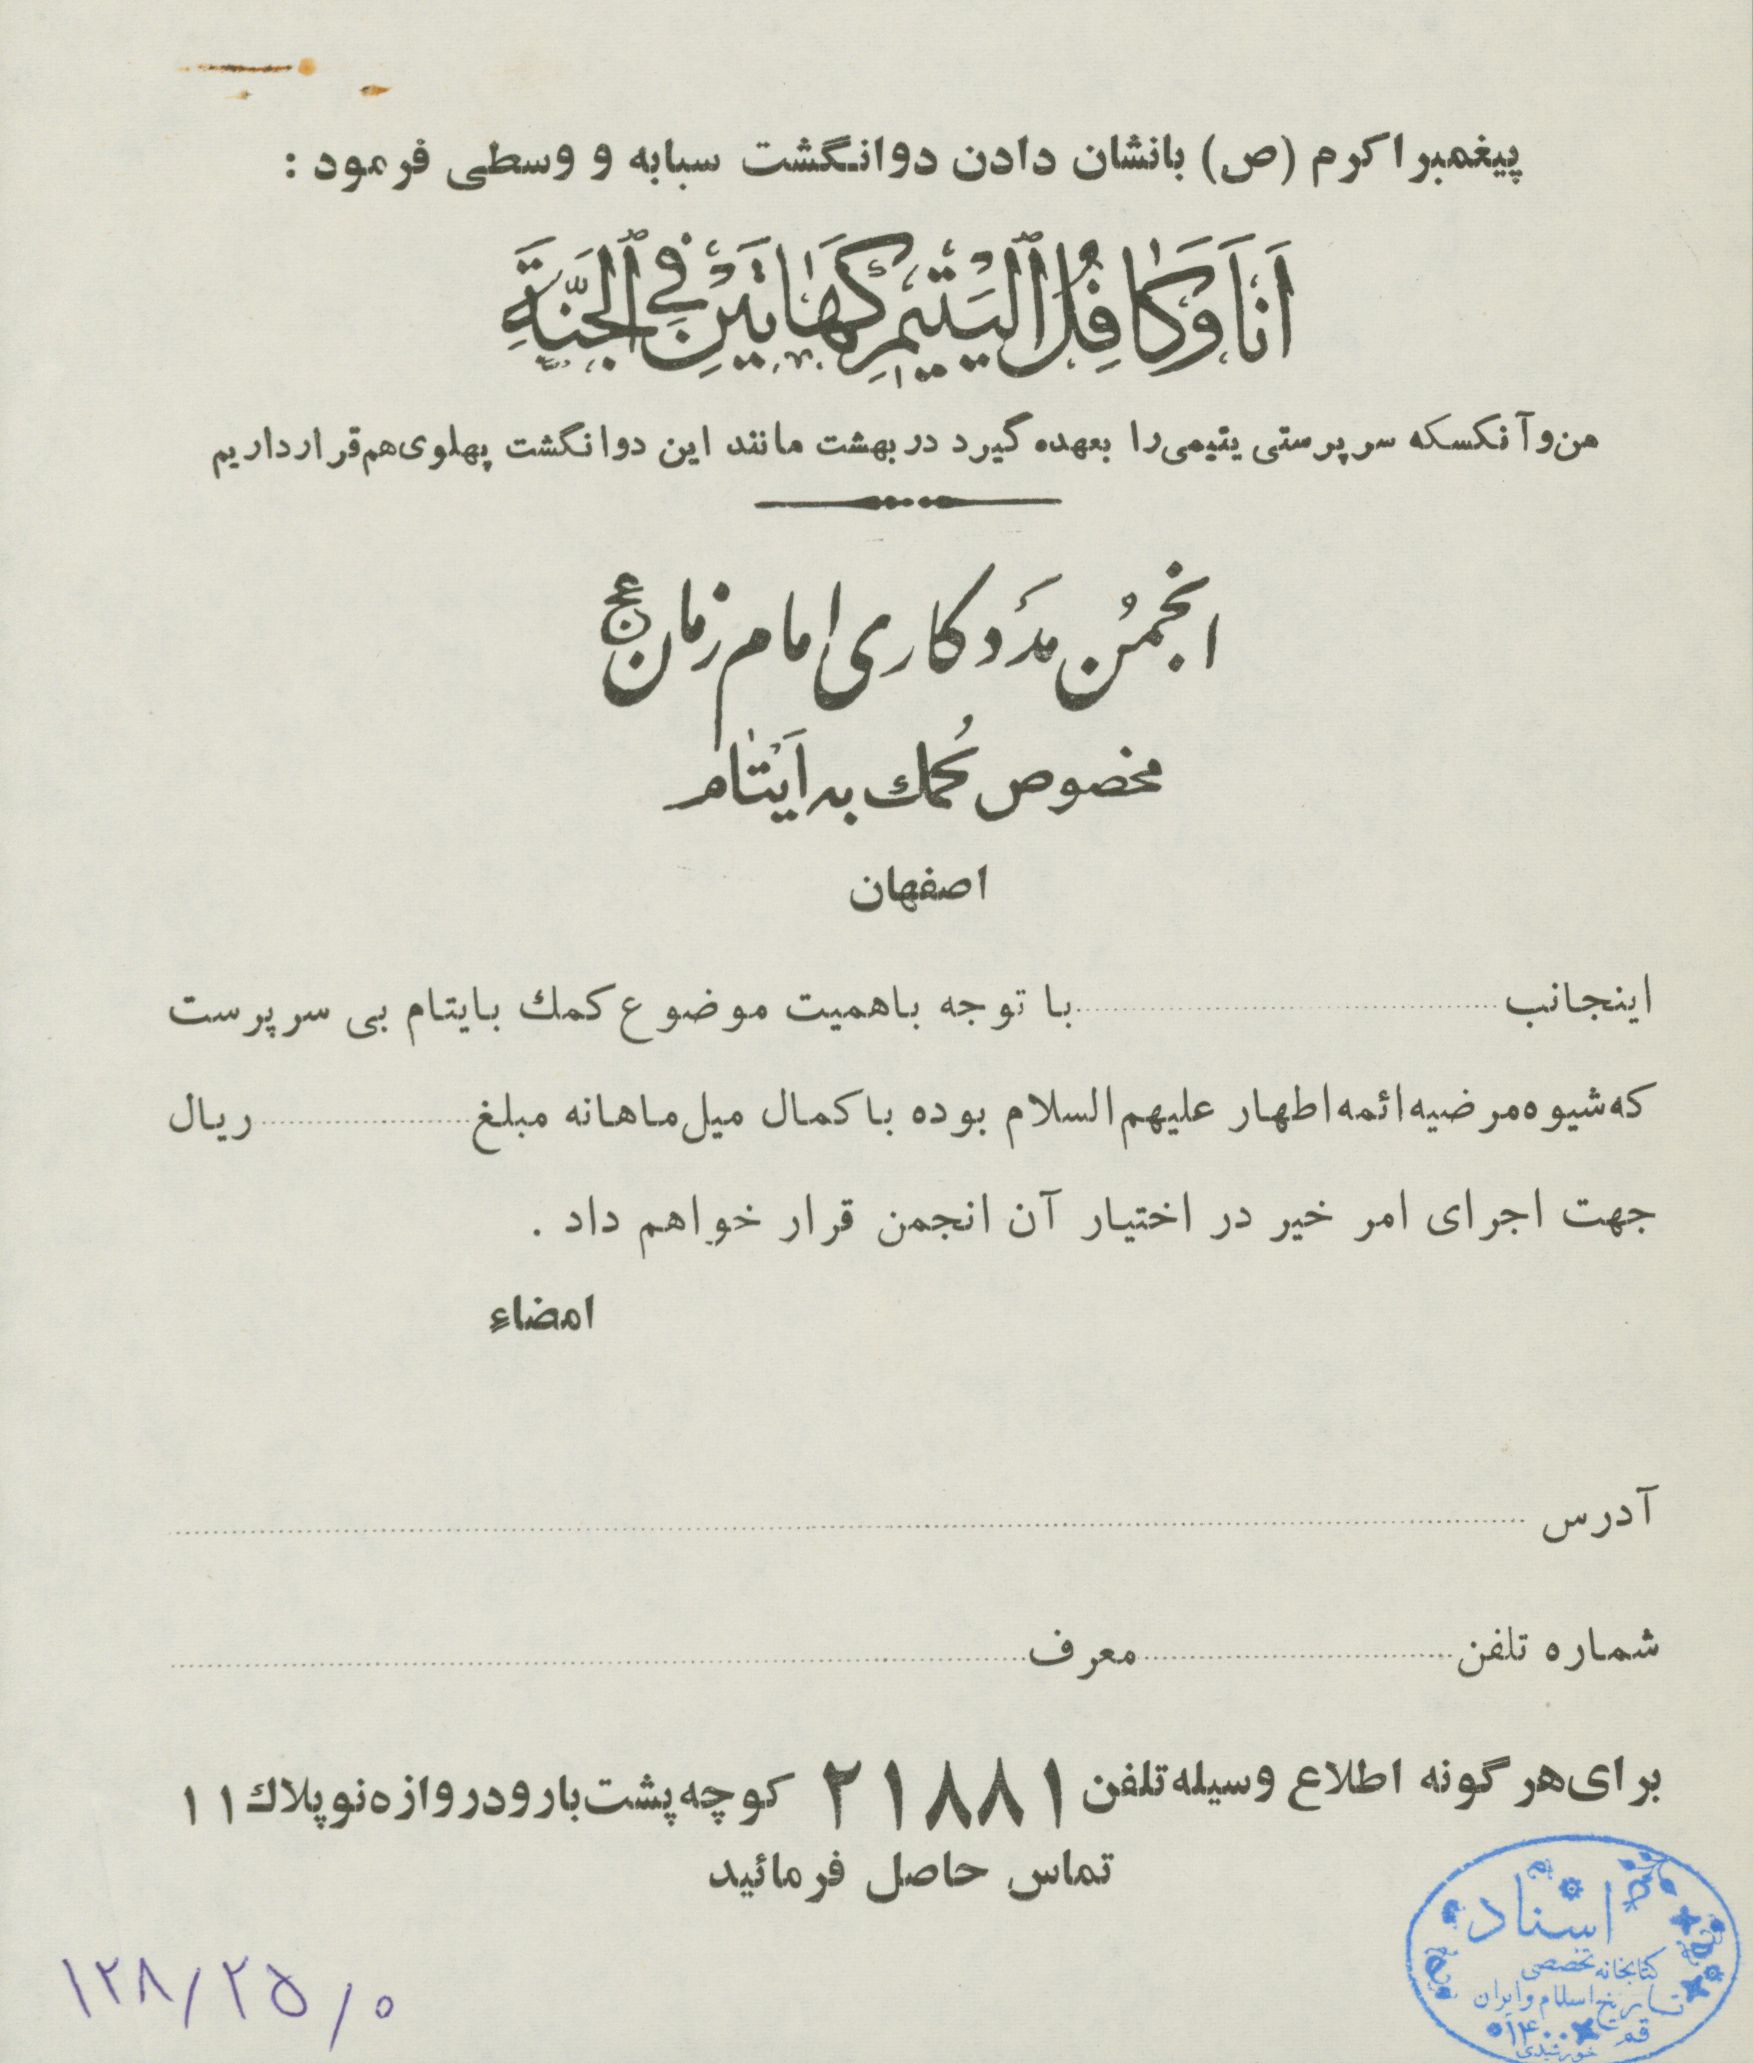 پیغمبر اکرم (ص) بانشان دادن دو انگشت سبابه و وسطی فرمود :
اَنَا وَكَافِلُ الْيَتيمِ كَهَاتَيْنِ فِي الْجَنَّةِ
من و آنکسکه سرپرستی یتیمی را بعهده گیرد در بهشت مانند این دو انگشت پهلوی هم قرار داریم
انجمُن مدَدکاری امام زمان عج
مخصوص کُمك به اَیْتٰام
اصفهان
اینجانب ........ با توجه باهمیت موضوع کمك بایتام بی سرپرست
که شیوه مرضیه ائمه اطهار علیهم السلام بوده با کمال میل ماهانه مبلغ ........ ریال
جهت اجرای امر خیر در اختیار آن انجمن قرار خواهم داد .
امضاء
آدرس ........
شماره تلفن ........ معرف ........
برای هر گونه اطلاع وسیله تلفن ۲۱۸۸۱ کوچه پشت بارو دروازه نو پلاك ۱۱
تماس حاصل فرمائید
اسناد
کتابخانه تخصصی
تاریخ اسلام و ایران
قم ۱۴۰۰
خورشیدی
۱۲۸/۲۵/۰